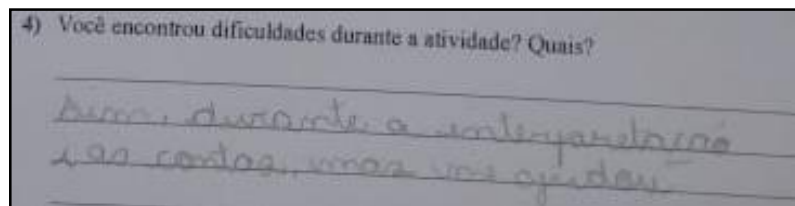 4) Você encontrou dificuldades durante a atividade? Quais?
Sim, durante a interpretação
e as contas, mas me ajudou